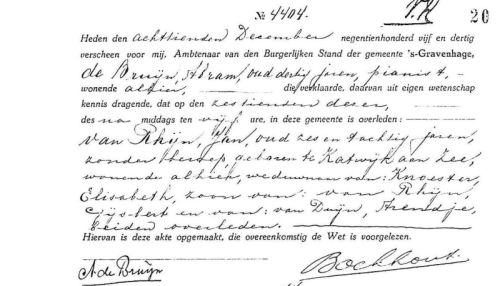 № 4404. V.K 20
Heden den achttienden December negentienhonderd vijf en dertig
verscheen voor mij, Ambtenaar van den Burgerlijken Stand der gemeente 's-Gravenhage,
de Bruijn, Abram, oud dertig jaren, pianist,
wonende alhier, die verklaarde, daarvan uit eigen wetenschap
kennis dragende, dat op den zestienden dezer,
des na middags ten vijf ure, in deze gemeente is overleden:
van Rhijn, Jan, oud zes en tachtig jaren,
zonder beroep, geboren te Katwijk aan Zee,
wonende alhier, weduwnaar van: Knoester,
Elisabeth, zoon van: van Rhijn,
Gijsbert en van: van Duijn, Arendje,
beiden overleden.
Hiervan is deze akte opgemaakt, die overeenkomstig de Wet is voorgelezen.
A de Bruijn Bockhout